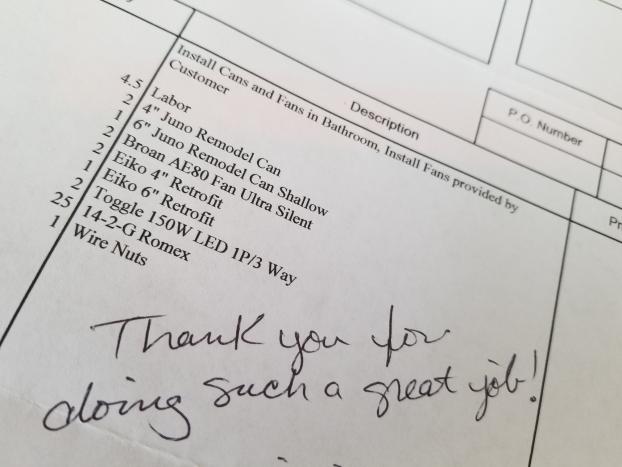 P.O. Number
Description
Install Cans and Fans in Bathroom, Install Fans provided by
Customer
4.5 Labor
2 4" Juno Remodel Can
1 6" Juno Remodel Can Shallow
2 Broan AE80 Fan Ultra Silent
2 Eiko 4" Retrofit
1 Eiko 6" Retrofit
2 Toggle 150W LED 1P/3 Way
25 14-2-G Romex
1 Wire Nuts
Thank you for
doing such a great job!